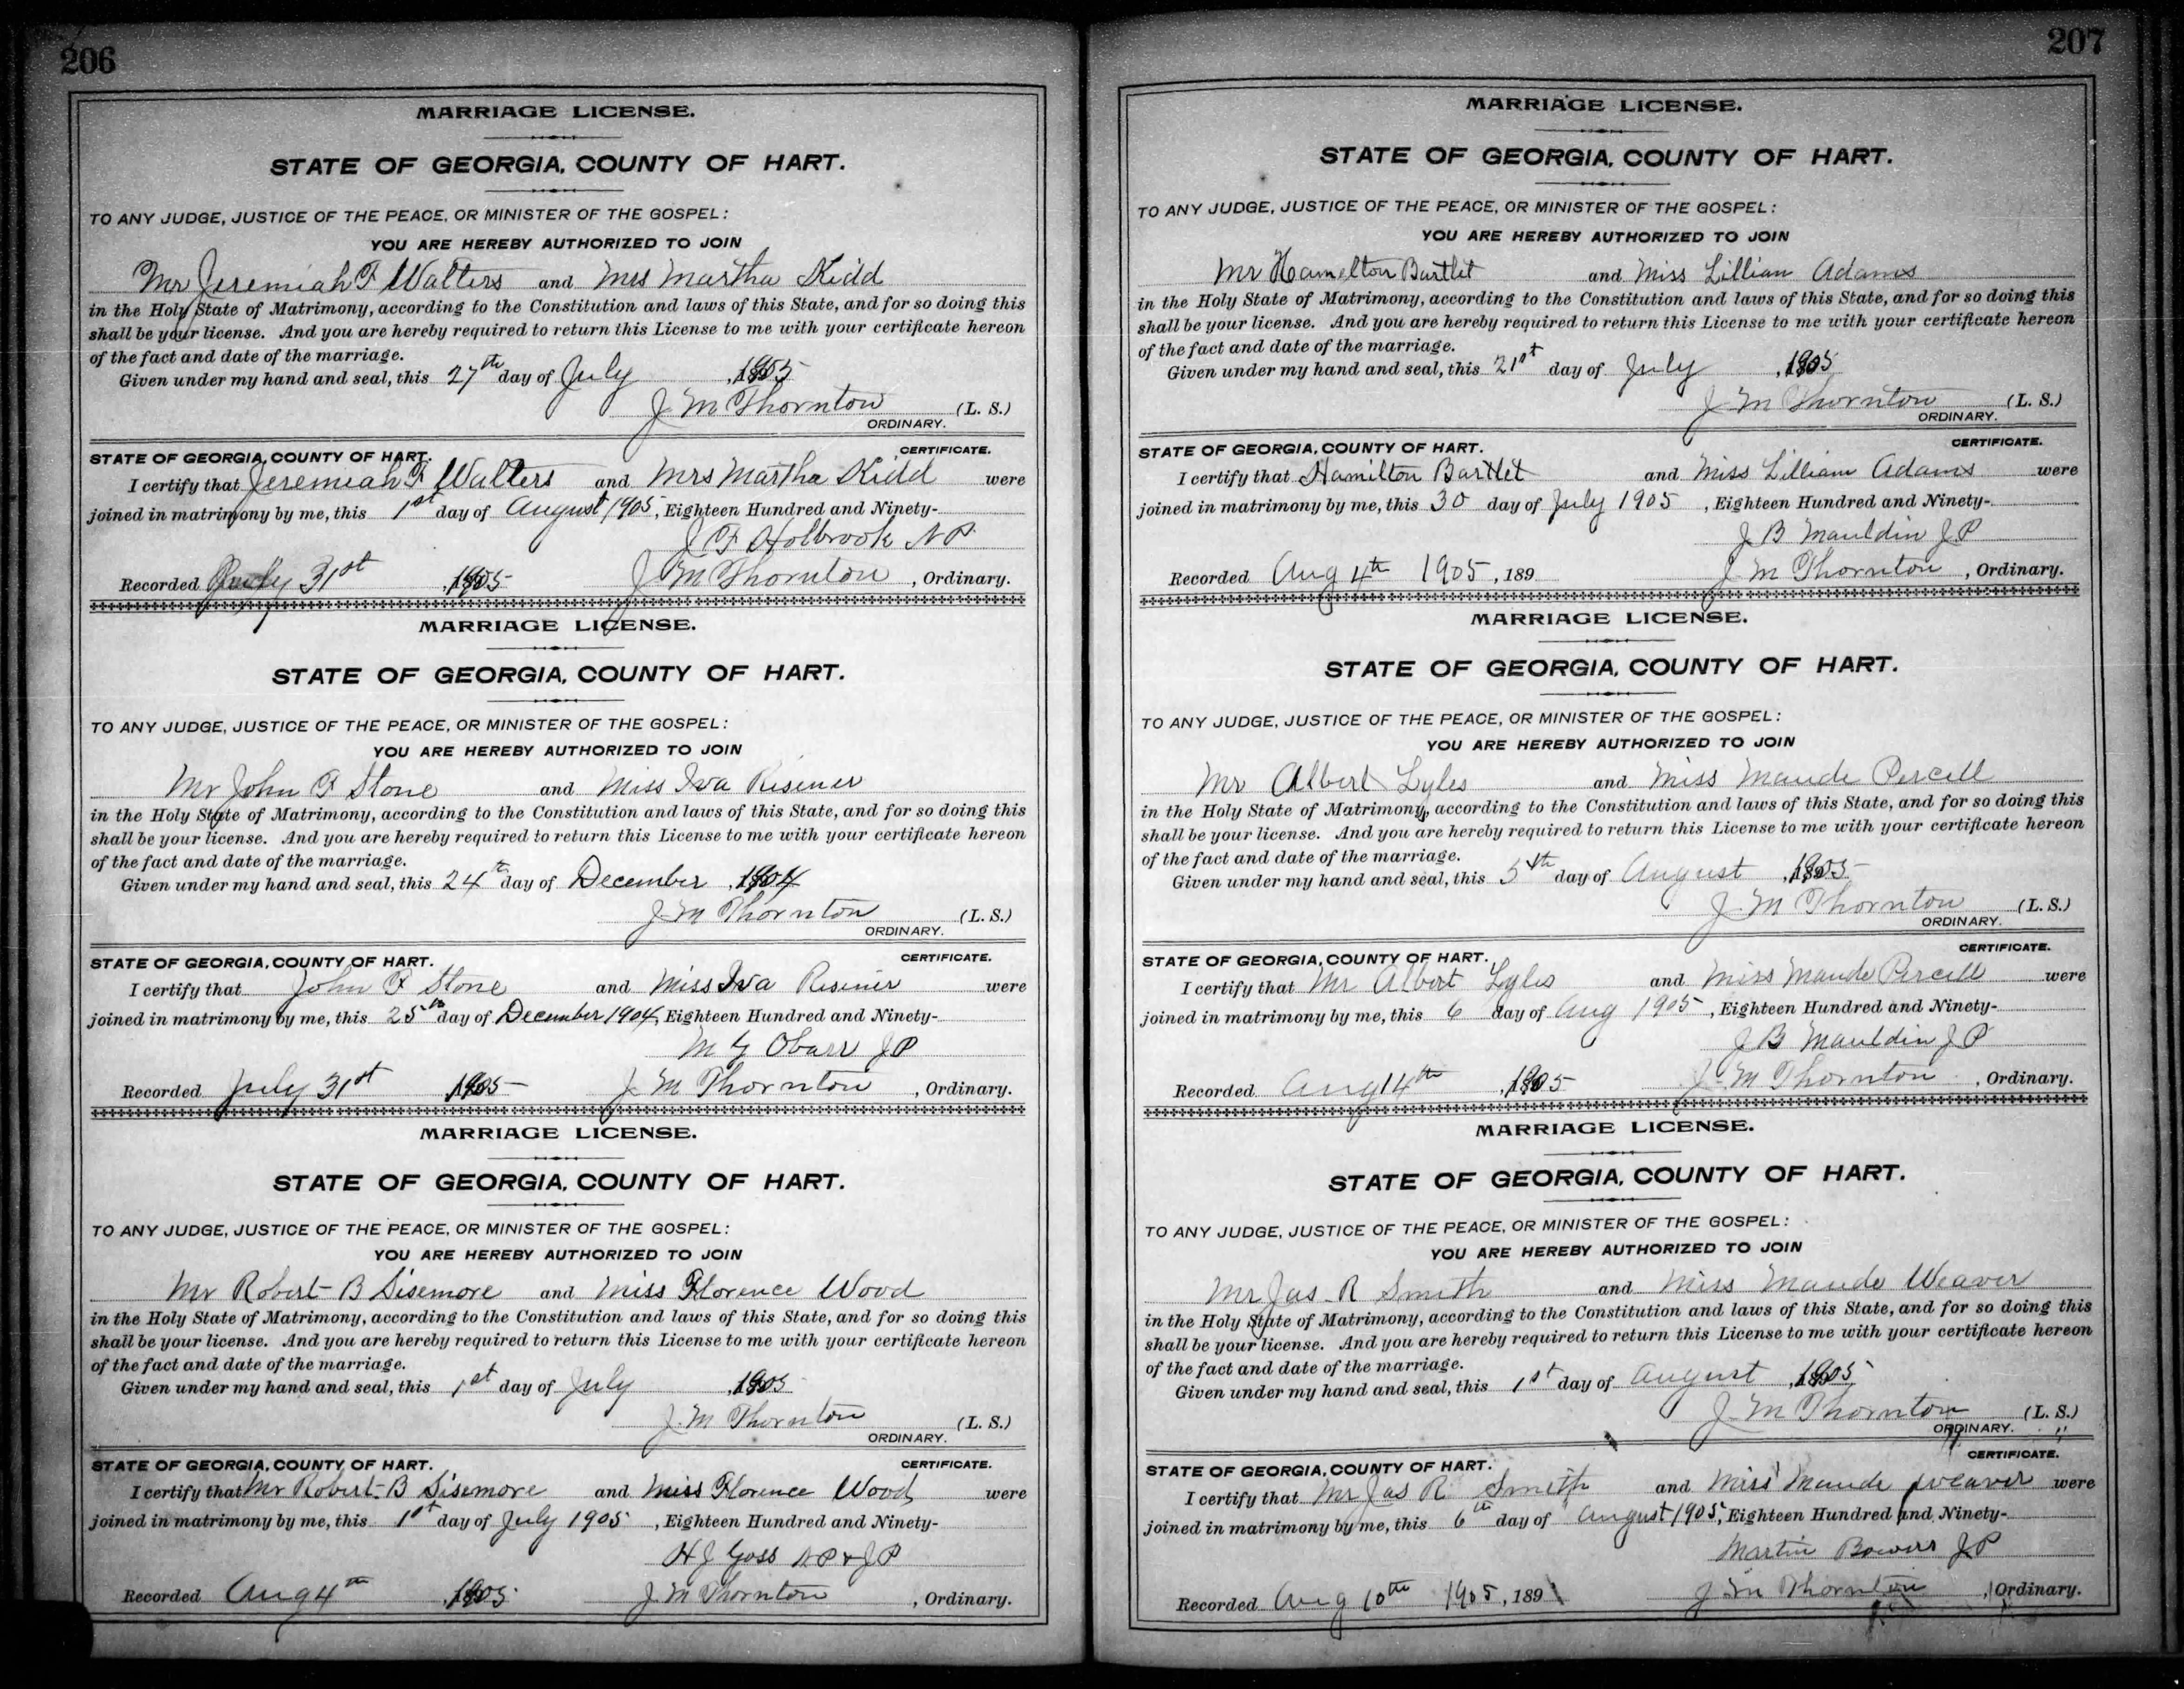 206
MARRIAGE LICENSE.
STATE OF GEORGIA, COUNTY OF HART.
TO ANY JUDGE, JUSTICE OF THE PEACE, OR MINISTER OF THE GOSPEL:
YOU ARE HEREBY AUTHORIZED TO JOIN
Mr Jeremiah F Walters and Mrs Martha Kidd
in the Holy State of Matrimony, according to the Constitution and laws of this State, and for so doing this
shall be your license. And you are hereby required to return this License to me with your certificate hereon
of the fact and date of the marriage.
Given under my hand and seal, this 27th day of July, 1905
J M Thornton (L. S.)
ORDINARY.
CERTIFICATE.
STATE OF GEORGIA, COUNTY OF HART.
I certify that Jeremiah F Walters and Mrs Martha Kidd were
joined in matrimony by me, this 1st day of August 1905, Eighteen Hundred and Ninety-
J F Holbrook N P
Recorded July 31st, 1905 J M Thornton, Ordinary.
MARRIAGE LICENSE.
STATE OF GEORGIA, COUNTY OF HART.
TO ANY JUDGE, JUSTICE OF THE PEACE, OR MINISTER OF THE GOSPEL:
YOU ARE HEREBY AUTHORIZED TO JOIN
Mr John F Stone and Miss Iva Risener
in the Holy State of Matrimony, according to the Constitution and laws of this State, and for so doing this
shall be your license. And you are hereby required to return this License to me with your certificate hereon
of the fact and date of the marriage.
Given under my hand and seal, this 24th day of December, 1904
J M Thornton (L. S.)
ORDINARY.
CERTIFICATE.
STATE OF GEORGIA, COUNTY OF HART.
I certify that John F Stone and Miss Iva Risener were
joined in matrimony by me, this 25th day of December 1904, Eighteen Hundred and Ninety-
M G Obarr J P
Recorded July 31st 1905 J M Thornton, Ordinary.
MARRIAGE LICENSE.
STATE OF GEORGIA, COUNTY OF HART.
TO ANY JUDGE, JUSTICE OF THE PEACE, OR MINISTER OF THE GOSPEL:
YOU ARE HEREBY AUTHORIZED TO JOIN
Mr Robert B Sisemore and Miss Florence Wood
in the Holy State of Matrimony, according to the Constitution and laws of this State, and for so doing this
shall be your license. And you are hereby required to return this License to me with your certificate hereon
of the fact and date of the marriage.
Given under my hand and seal, this 1st day of July, 1905
J. M Thornton (L. S.)
ORDINARY.
CERTIFICATE.
STATE OF GEORGIA, COUNTY OF HART.
I certify that Mr Robert B Sisemore and Miss Florence Wood were
joined in matrimony by me, this 1st day of July 1905, Eighteen Hundred and Ninety-
H J Goss N P & J P
Recorded Aug 4th, 1905 J M Thornton, Ordinary.
207
MARRIAGE LICENSE.
STATE OF GEORGIA, COUNTY OF HART.
TO ANY JUDGE, JUSTICE OF THE PEACE, OR MINISTER OF THE GOSPEL:
YOU ARE HEREBY AUTHORIZED TO JOIN
Mr Hamelton Bartlit and Miss Lillian Adams
in the Holy State of Matrimony, according to the Constitution and laws of this State, and for so doing this
shall be your license. And you are hereby required to return this License to me with your certificate hereon
of the fact and date of the marriage.
Given under my hand and seal, this 21st day of July, 1905
J M Thornton (L. S.)
ORDINARY.
CERTIFICATE.
STATE OF GEORGIA, COUNTY OF HART.
I certify that Hamilton Bartlet and Miss Lilliam Adams were
joined in matrimony by me, this 30 day of July 1905, Eighteen Hundred and Ninety-
J B Mauldin J P
Recorded Aug 4th 1905, 189 J M Thornton, Ordinary.
MARRIAGE LICENSE.
STATE OF GEORGIA, COUNTY OF HART.
TO ANY JUDGE, JUSTICE OF THE PEACE, OR MINISTER OF THE GOSPEL:
YOU ARE HEREBY AUTHORIZED TO JOIN
Mr Albert Lyles and Miss Maude Percell
in the Holy State of Matrimony, according to the Constitution and laws of this State, and for so doing this
shall be your license. And you are hereby required to return this License to me with your certificate hereon
of the fact and date of the marriage.
Given under my hand and seal, this 5th day of August, 1905
J M Thornton (L. S.)
ORDINARY.
CERTIFICATE.
STATE OF GEORGIA, COUNTY OF HART.
I certify that Mr Albert Lyles and Miss Maude Percell were
joined in matrimony by me, this 6 day of Aug 1905, Eighteen Hundred and Ninety-
J B Mauldin J P
Recorded Aug 14th, 1905 J M Thornton, Ordinary.
MARRIAGE LICENSE.
STATE OF GEORGIA, COUNTY OF HART.
TO ANY JUDGE, JUSTICE OF THE PEACE, OR MINISTER OF THE GOSPEL:
YOU ARE HEREBY AUTHORIZED TO JOIN
Mr Jas R Smith and Miss Maude Weaver
in the Holy State of Matrimony, according to the Constitution and laws of this State, and for so doing this
shall be your license. And you are hereby required to return this License to me with your certificate hereon
of the fact and date of the marriage.
Given under my hand and seal, this 1st day of August, 1905
J M Thornton (L. S.)
ORDINARY.
CERTIFICATE.
STATE OF GEORGIA, COUNTY OF HART.
I certify that Mr Jas R Smith and Miss Maude Weaver were
joined in matrimony by me, this 6th day of August 1905, Eighteen Hundred and Ninety-
Martin Bowers J P
Recorded Aug 10th 1905, 189 J M Thornton, Ordinary.